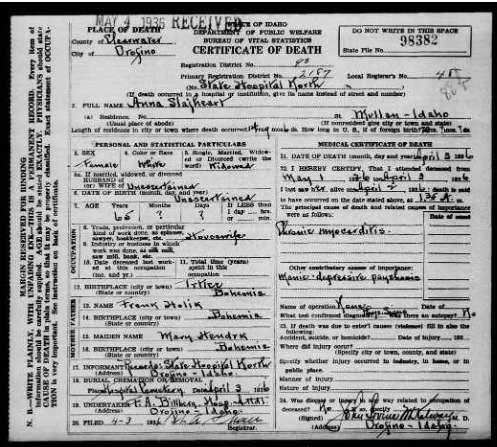 MAY 4 1936 RECEIVED
STATE OF IDAHO
DEPARTMENT OF PUBLIC WELFARE
BUREAU OF VITAL STATISTICS
CERTIFICATE OF DEATH
DO NOT WRITE IN THIS SPACE
State File No. 98382
PLACE OF DEATH
County of Clearwater
City of Orofino
Registration District No. 90
Primary Registration District No. 2157
Local Registrar's No. 458
(No. State Hospital North
(If death occurred in a hospital or institution, give its name instead of street and number)
2. FULL NAME Anna Slajheart
(a) Residence. No. St. Mullan - Idaho
(Usual place of abode) (If nonresident give city or town and state)
Length of residence in city or town where death occurred
How long in U. S., if of foreign birth?
PERSONAL AND STATISTICAL PARTICULARS
3. SEX
Female
4. Color or Race
White
5. Single, Married, Widowed or Divorced (write the word)
Widowed
5a. If married, widowed, or divorced
HUSBAND of
(or) WIFE of Unascertained
6. DATE OF BIRTH (month, day, and year)
Unascertained
7. AGE Years Months Days
65 ? ?
If LESS than
1 day
OCCUPATION
8. Trade, profession, or particular kind of work done, as spinner, sawyer, bookkeeper, etc.
Housewife
9. Industry or business in which work was done, as silk mill, saw mill, bank, etc.
10. Date deceased last worked at this occupation (month and year)
11. Total time (years) spent in this occupation
12. BIRTHPLACE (city or town)
(State or country) Bohemia
13. NAME Frank Holik
14. BIRTHPLACE (city or town) Bohemia
(State or country)
15. MAIDEN NAME Mary Hendrx
16. BIRTHPLACE (city or town) Bohemia
(State or country)
17. INFORMANT Records: State Hospital North
(Address) Orofino - Idaho
18. BURIAL, CREMATION OR REMOVAL
Place Hospital Cemetery Date April 3 1936
19. UNDERTAKER
(Address) Orofino - Idaho.
20. FILED 4-3 1936
Registrar.
MEDICAL CERTIFICATE OF DEATH
21. DATE OF DEATH (month, day, and year) April 3 1936
22. I HEREBY CERTIFY, That I attended deceased from
I last saw her alive on April 2 1936; death is said
to have occurred on the date stated above, at
The principal cause of death and related causes of importance were as follows:
Date of onset
Chronic myocarditis
Other contributory causes of importance:
Manic-depressive psychosis
Name of operation None Date of
What test confirmed diagnosis? Was there an autopsy? No
23. If death was due to external causes (violence) fill in also the following:
Accident, suicide, or homicide? Date of injury
Where did injury occur?
(Specify city or town, county, and state)
Specify whether injury occurred in industry, in home, or in public place.
Manner of injury
Nature of injury
24. Was disease or injury in any way related to occupation of deceased? No
If so, specify
(Signed) M. D.
(Address) Orofino - Idaho
MARGIN RESERVED FOR BINDING
N. B.—WRITE PLAINLY, WITH UNFADING INK—THIS IS A PERMANENT RECORD. Every item of information should be carefully supplied. AGE should be stated EXACTLY. PHYSICIANS should state CAUSE OF DEATH in plain terms, so that it may be properly classified. Exact statement of OCCUPATION is very important. See instructions on back of certificate.